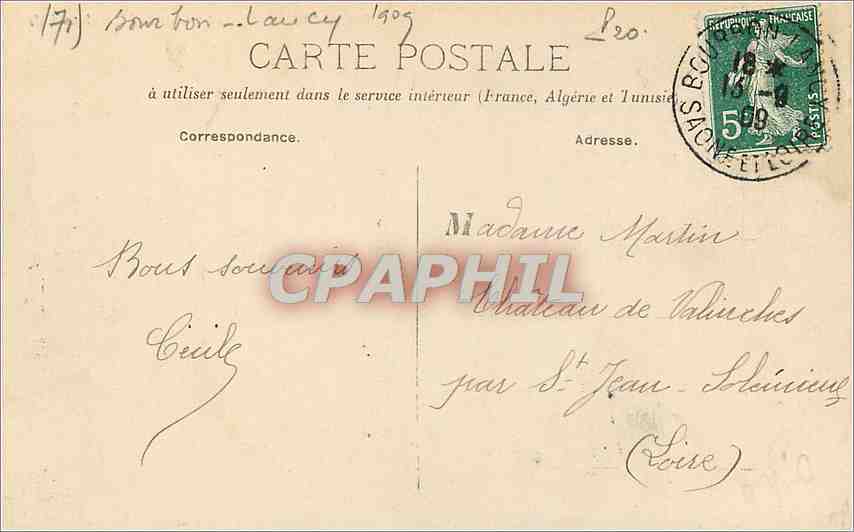 (71) Bourbon-Lancy 1909
P20.
CARTE POSTALE
à utiliser seulement dans le service intérieur (France, Algérie et Tunisie
Correspondance.
Adresse.
REPUBLIQUE FRANÇAISE
5c
POSTES
BOURBON-LANCY
18 *
13 -9
09
SAONE ET LOIRE
Bons souvenirs
Cécile
Madame Martin
Château de Valinches
par St Jean-Soleimieux
(Loire)
CPAPHIL